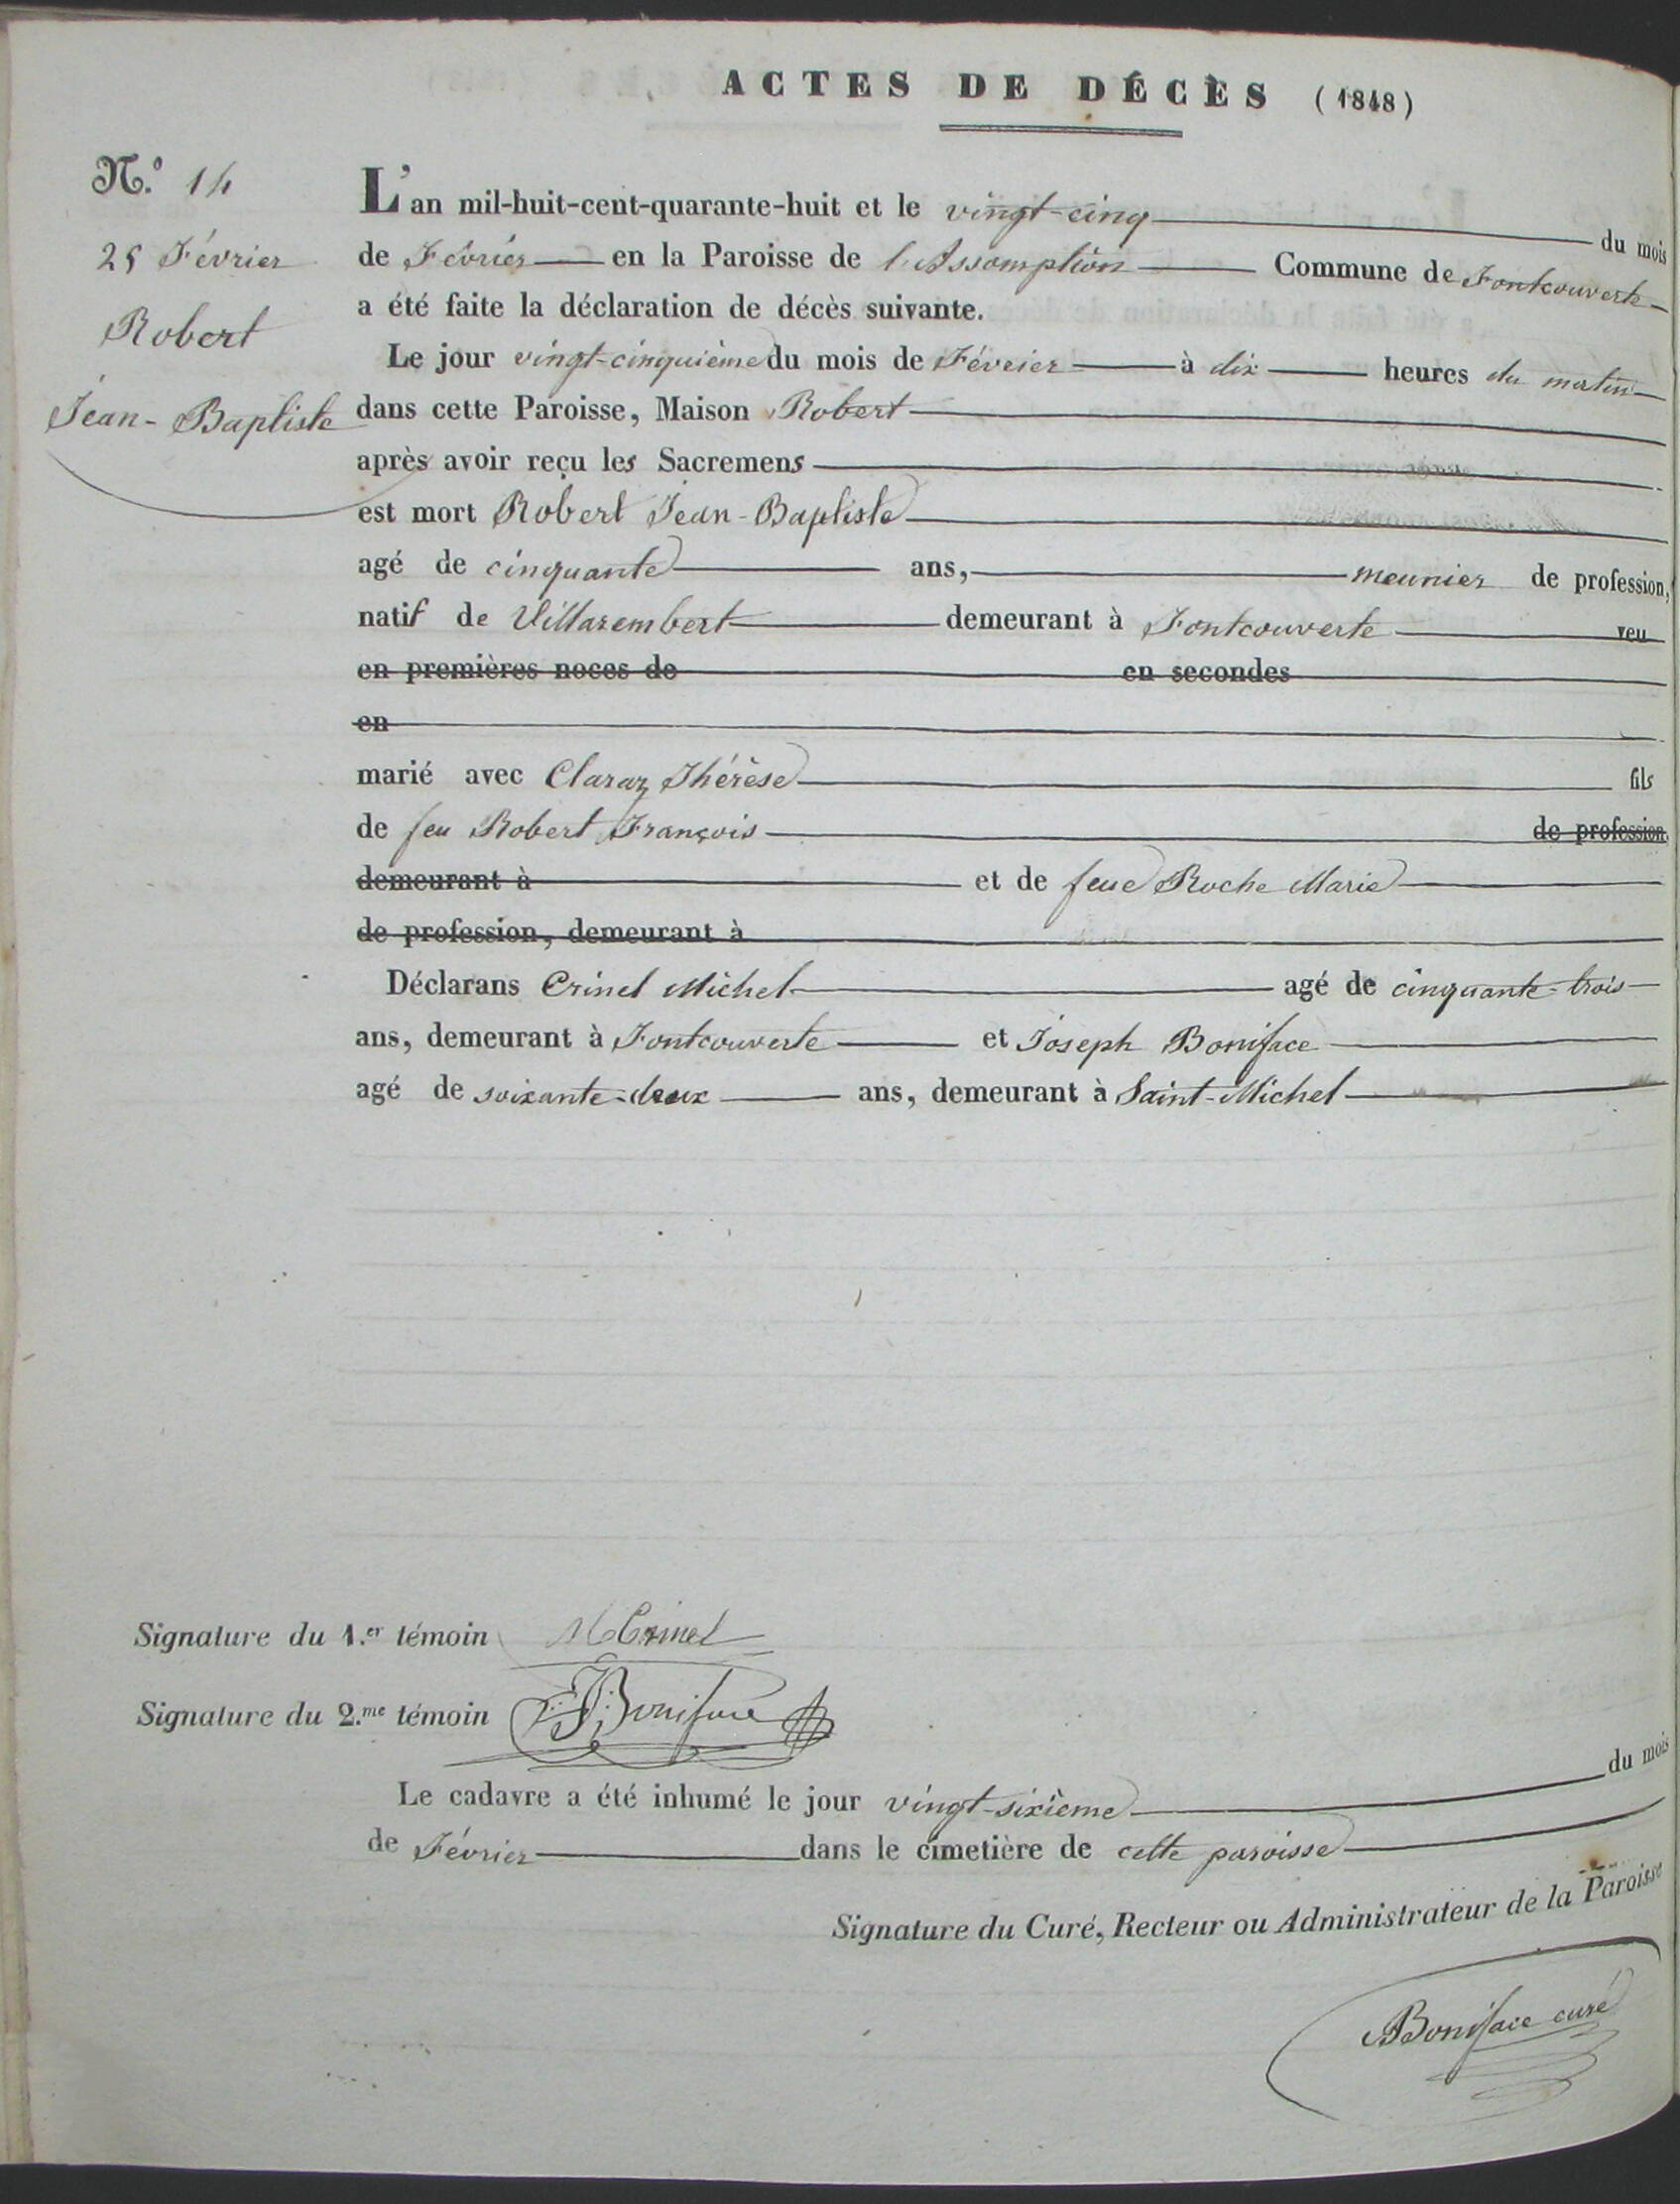 ACTES DE DÉCÈS (1848)
N.o 14
25 Février
Robert
Jean-Baptiste
L'an mil-huit-cent-quarante-huit et le vingt-cinq du mois
de Février en la Paroisse de l'Assomption Commune de Fontcouverte
a été faite la déclaration de décès suivante.
Le jour vingt-cinquième du mois de Février à dix heures du matin
dans cette Paroisse, Maison Robert
après avoir reçu les Sacremens
est mort Robert Jean-Baptiste
agé de cinquante ans, meunier de profession,
natif de Villarembert demeurant à Fontcouverte veu
en premières noces de en secondes
en
marié avec Claraz Thérèse fils
de feu Robert François de profession,
demeurant à et de feue Roche Marie
de profession, demeurant à
Déclarans Crinel Michel agé de cinquante-trois
ans, demeurant à Fontcouverte et Joseph Boniface
agé de soixante-deux ans, demeurant à Saint-Michel
Signature du 1.er témoin M Crinel
Signature du 2.me témoin J Boniface
Le cadavre a été inhumé le jour vingt-sixième du mois
de Février dans le cimetière de cette paroisse
Signature du Curé, Recteur ou Administrateur de la Paroisse
Boniface curé